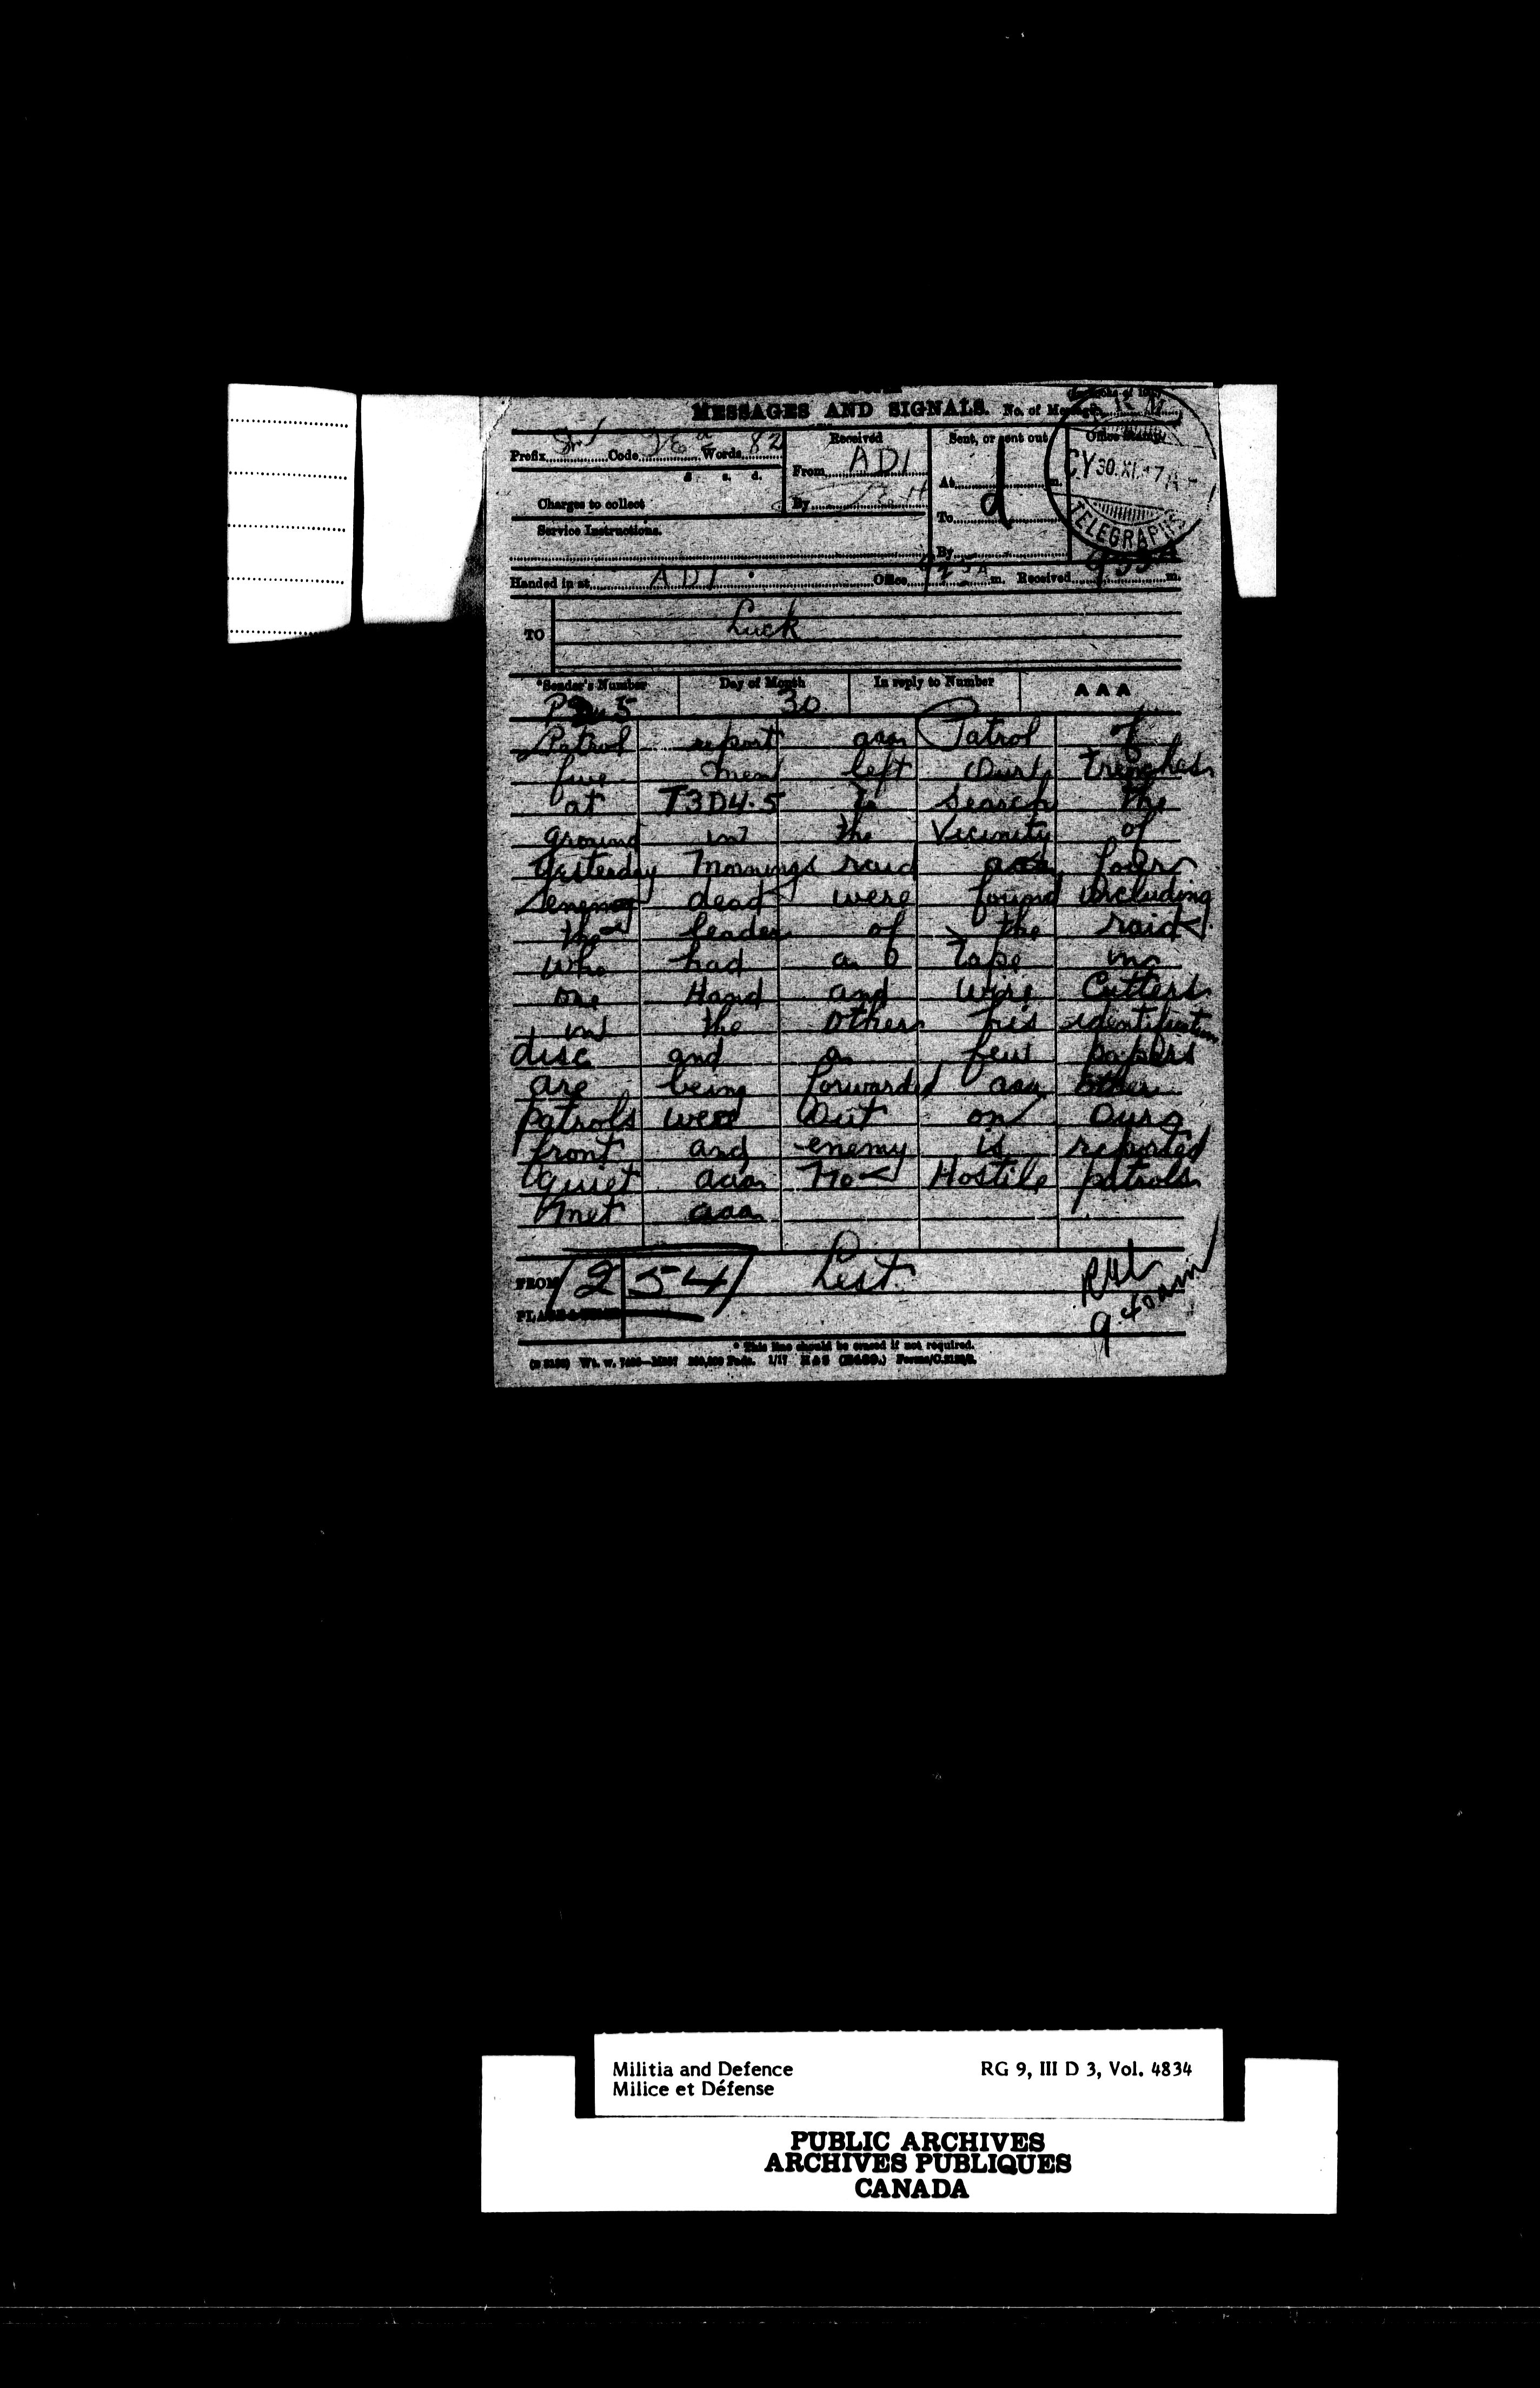 MESSAGES AND SIGNALS. No. of Message
Prefix Code Words 82
Received
From ADI
By
Sent, or sent out
At m.
To
By
Office Stamp
CY 30.XI.17
TELEGRAPHS
s. d.
Charges to collect
Service Instructions.
Handed in at ADI Office m. Received m.
TO Luck
*Sender's Number
Day of Month 30
In reply to Number
AAA
Patrol report aaa Patrol of
five men left our trenches
at T3D4.5 to search the
ground in the Vicinity of
yesterday mornings raid aaa four
enemy dead were found including
the leader of the raid
who had a tape in
one Hand and wire Cutters
in the other his identification
disc and a few papers
are being forwarded aaa other
patrols were out on our
front and enemy is reported
quiet aaa No Hostile patrols
met aaa
FROM 12 54 Lest
PLACE & TIME
* This line should be erased if not required.
Militia and Defence RG 9, III D 3, Vol. 4834
Milice et Défense
PUBLIC ARCHIVES
ARCHIVES PUBLIQUES
CANADA